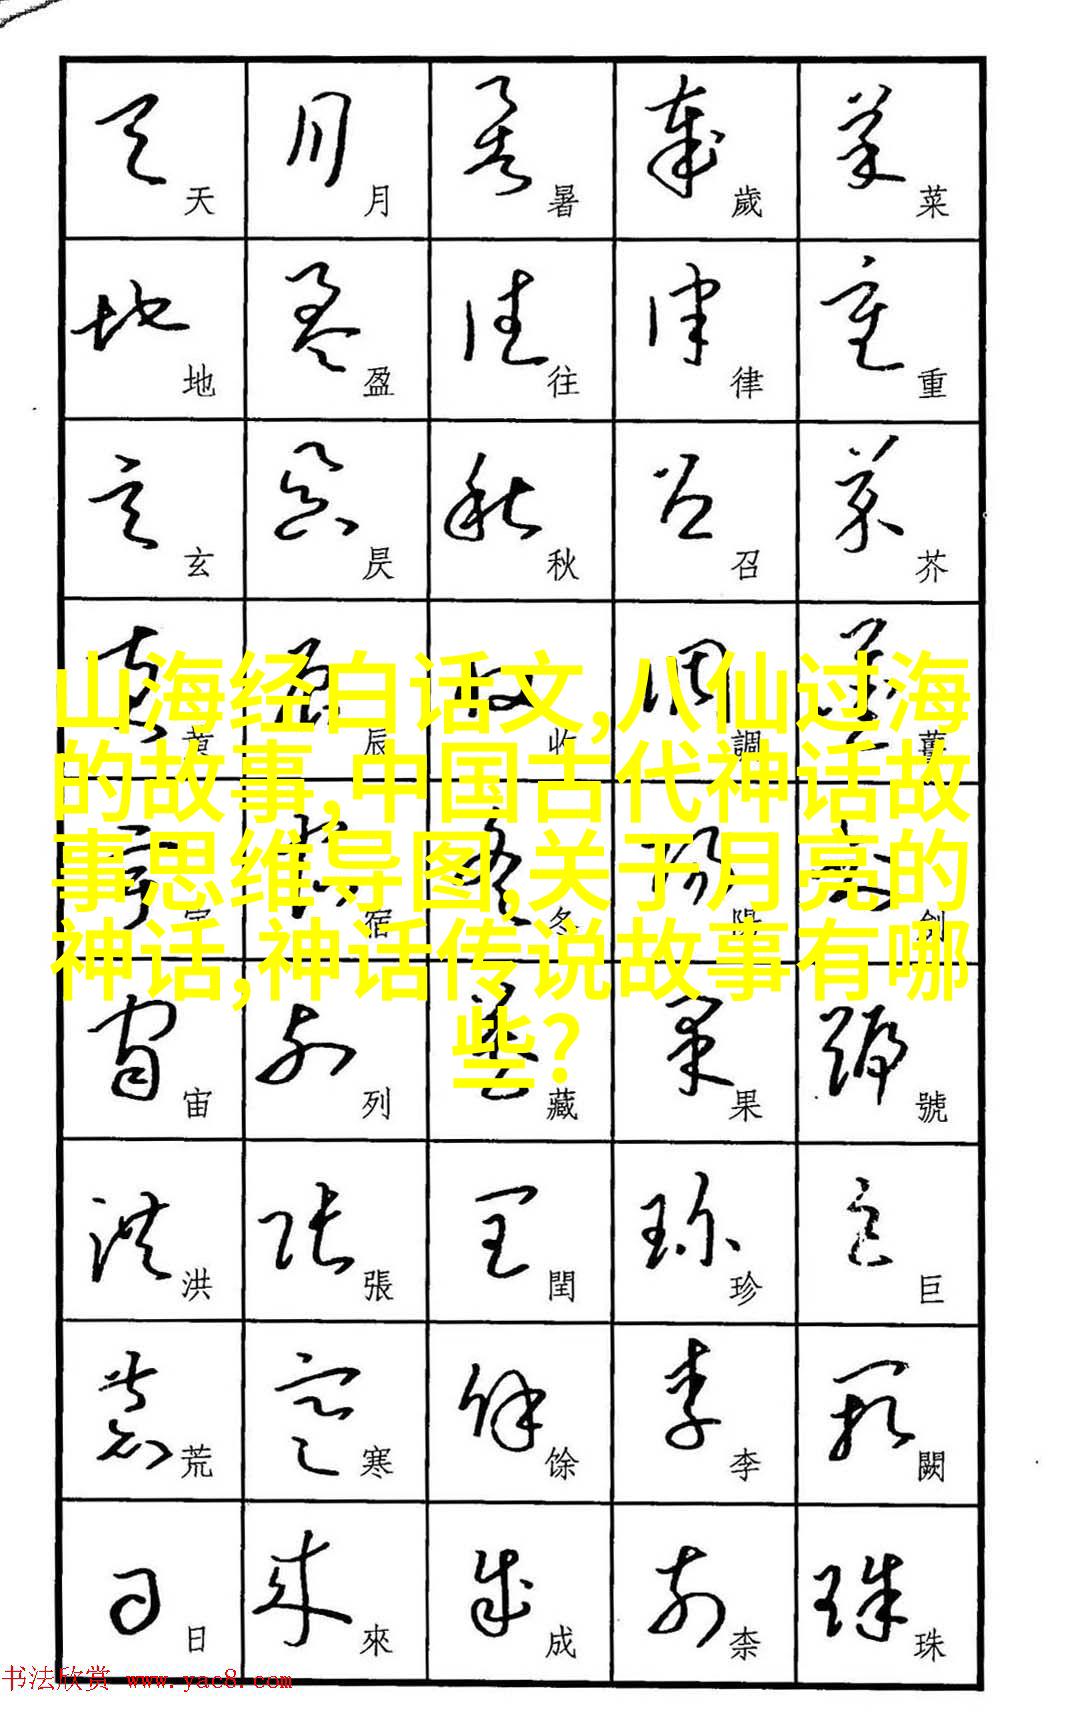 天 月 暑 歲 菜
地 盈 往 律 重
玄 昃 秋 召 芥
黄 辰 收 調 薑
山海经白话文,八仙过海
的故事,中国古代神话故
事思维导图,关于月亮的
神话,神话传说故事有哪
些?
宿 冬 陽 劍
宙 列 藏 果 號
洪 張 閏 珍 巨
荒 寒 馀 李 闕
日 來 成 柰 珠
书法欣赏 www.yac8.com